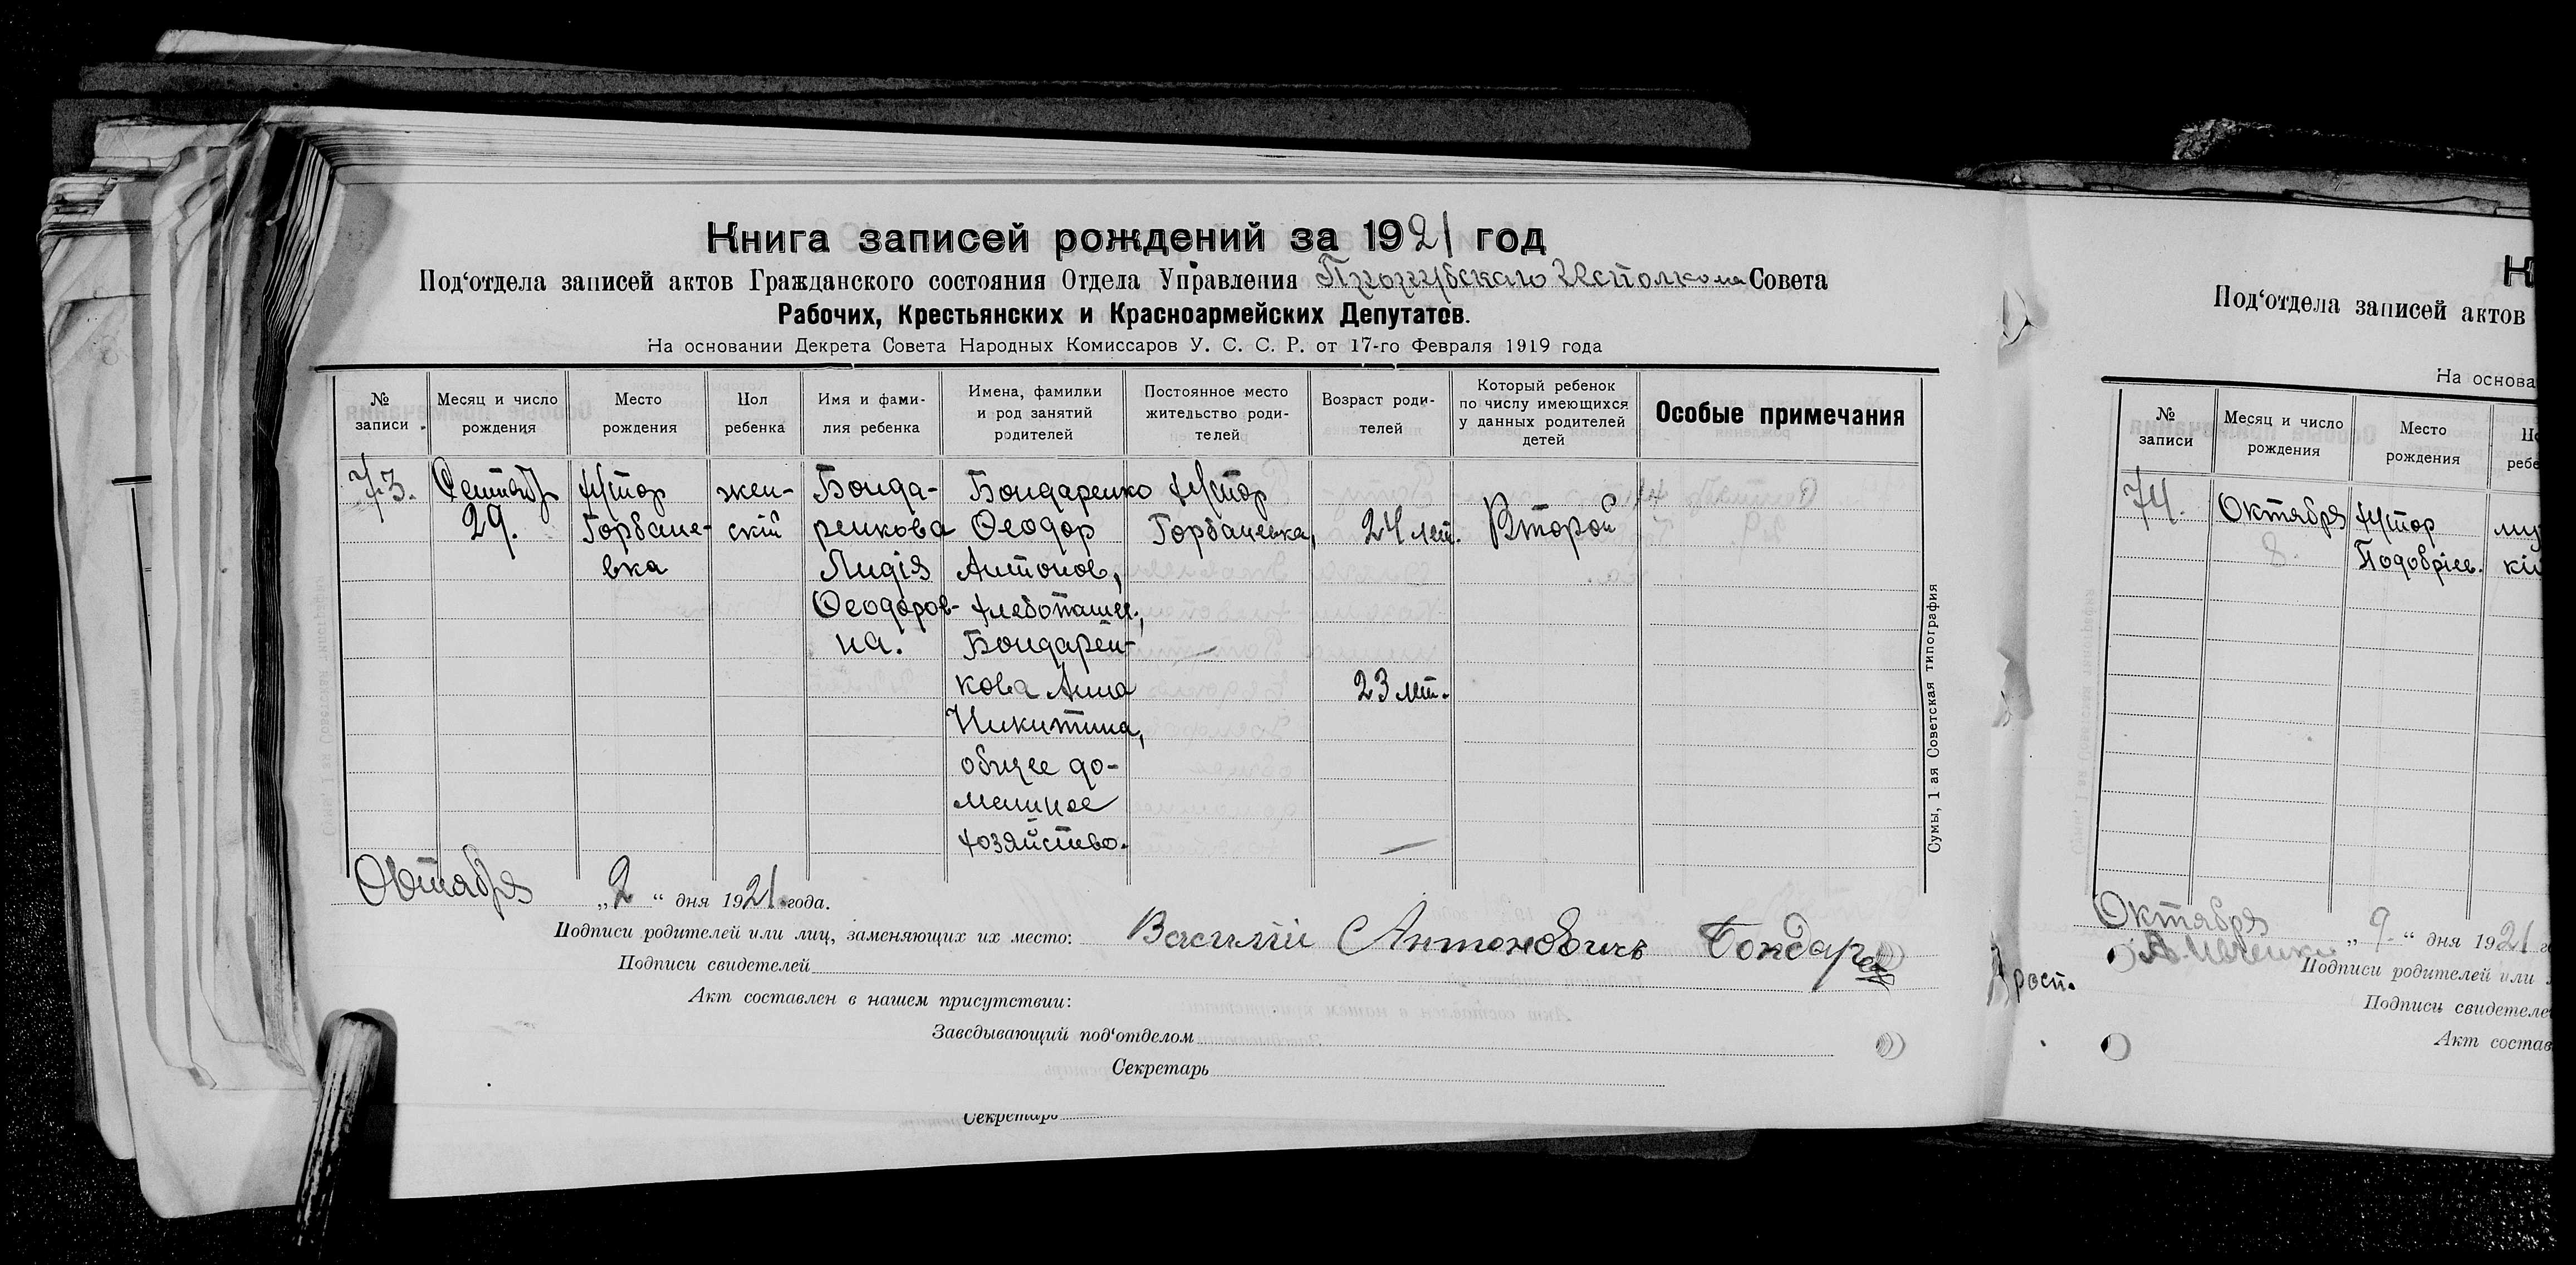 Книга записей рождений за 1921 год
Под‘отдела записей актов Гражданского состояния Отдела Управления Исполкома Совета
Рабочих, Крестьянских и Красноармейских Депутатов.
На основании Декрета Совета Народных Комиссаров У. С. С. Р. от 17-го Февраля 1919 года
№ записи
Месяц и число рождения
Место рождения
Пол ребенка
Имя и фамилия ребенка
Имена, фамилки и род занятий родителей
Постоянное место жительство родителей
Возраст родителей
Который ребенок по числу имеющихся у данных родителей детей
Особые примечания
73.
29.
Хутор
Горбане-
вка
жен-
скій
Бонда-
ренкова
Лидія
Ѳеодоров-
на.
Бондаренко
Ѳеодор
Антонов,
Хлебопашец,
Бондарен-
кова Анна
Никитина,
общее до-
машнее
хозяйство.
Хутор
Горбаневка,
24 лет.
23 лет.
Второй
Сумы, 1-ая Советская типография
Октября „2“ дня 1921 года.
Подписи родителей или лиц, заменяющих их место: Василий Антоновичь
Подписи свидетелей
Акт составлен в нашем присутствии:
Заведывающий под‘отделом
Секретарь
Секретарь
Под‘отдела записей актов
На основа
№ записи
Месяц и число рождения
Место рождения
74.
Октября
8.
Хутор
Октября „9.“ дня 1921
Подписи родителей или
Подписи свидетеле
Акт состав